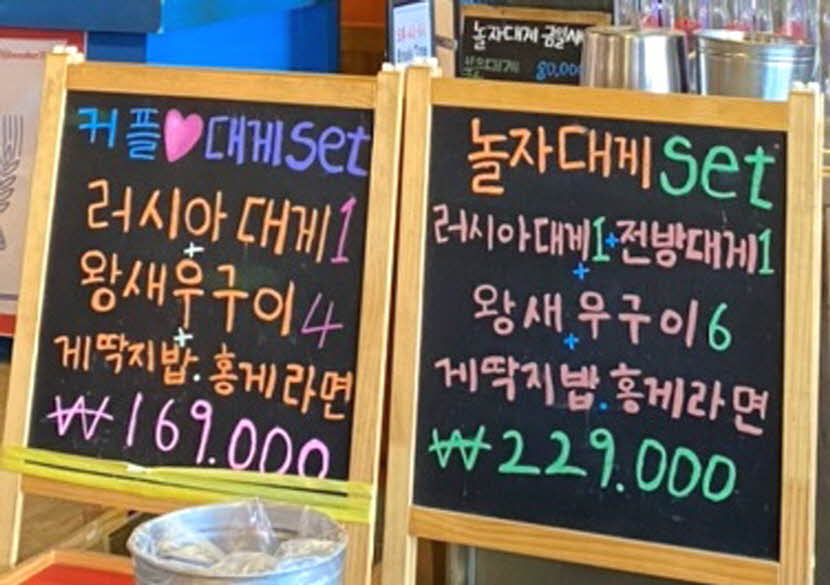 놀자대게 금일시
80,000
커플♥대게set
러시아대게1
+
왕새우구이4
+
게딱지밥.홍게라면
₩169.000
놀자대게set
러시아대게1+전방대게1
+
왕새우구이6
+
게딱지밥.홍게라면
₩229.000